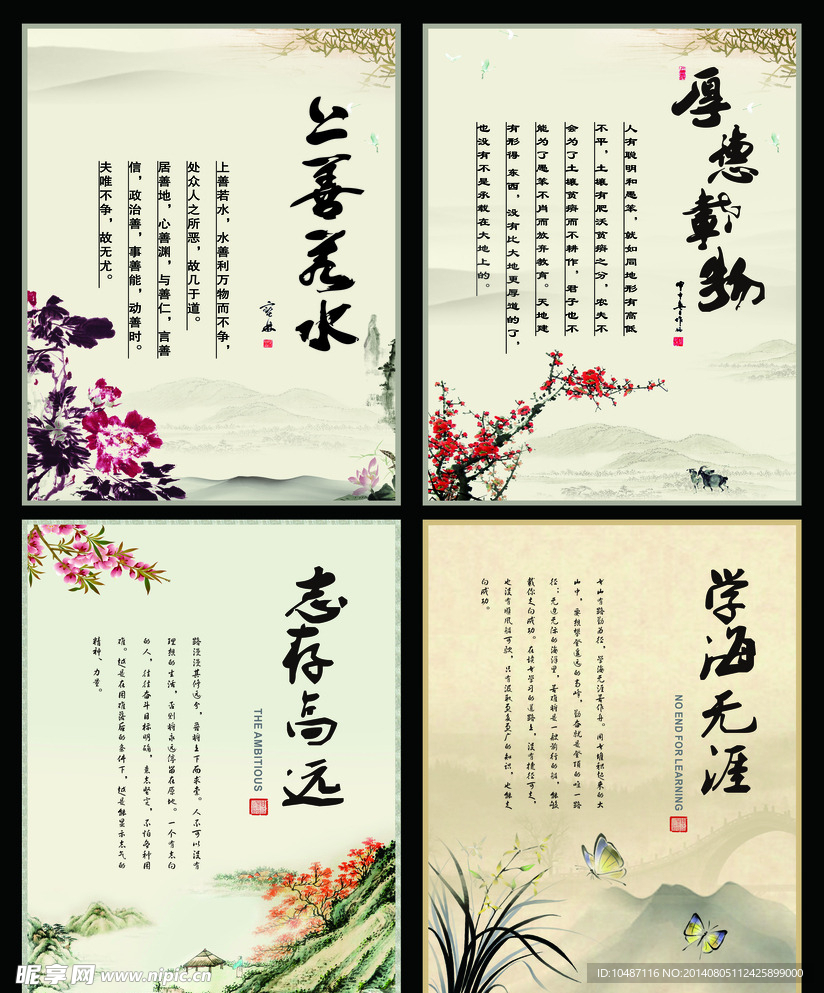 上善若水
上善若水，水善利万物而不争，
处众人之所恶，故几于道。
居善地，心善渊，与善仁，言善
信，政治善，事善能，动善时。
夫唯不争，故无尤。
厚德載物
人有聪明和愚笨，就如同地形有高低
不平，土壤有肥沃贫瘠之分，农夫不
会为了土壤贫瘠而不耕作，君子也不
能为了愚笨不肖而放弃教育。天地建
有形得 东西，没有比大地更厚道的了，
也没有不是承载在大地上的。
志存高远
THE AMBITIOUS
路漫漫其修远兮，吾将上下而求索。人不可以没有
理想的生活，否则将永远停留在原地。一个有志向
的人，往往奋斗目标明确，意志坚定，不怕各种困
难。越是在困难落后的条件下，越是能显示志气的
精神、力量。
学海无涯
NO END FOR LEARNING
书山有路勤为径，学海无涯苦作舟。用书堆积起来的大
山中，要想攀登遥远的高峰，勤奋就是登顶的唯一路
径；无边无际的海洋里，苦难将是一艘前行的船，能够
载你走向成功。在读书学习的道路上，没有捷径可走，
也没有顺风船可驶，只有汲取更多更广的知识，也能走
向成功。
昵享网 www.nipic.cn
ID:10487116 NO:20140805112425899000